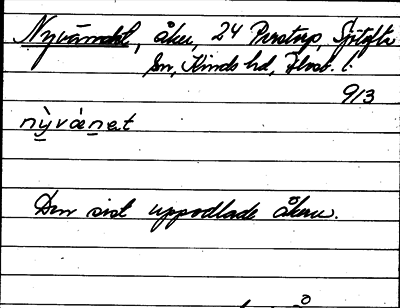 Nyvändet, åker, 24 Perstorp,
sn, Kinds hd, Älvsb. l.
9/3
nỳvänet
Den sist uppodlade åkern.